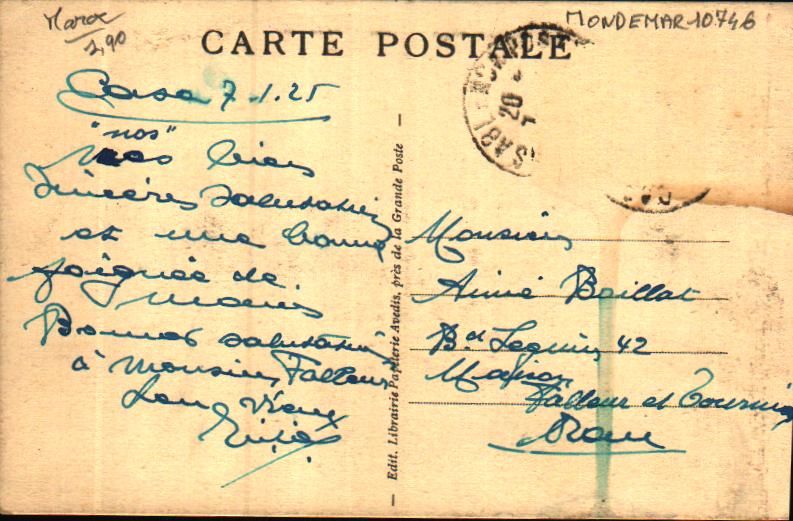 Maroc
2,90
MONDEMAR 10746
CARTE POSTALE
CASABLANCA
20
Casa 7.1.25
"nos"
bien
sincères salutations
et une bonne
poignée de
mains
Bonnes salutations
à Monsieur Falleur
Ton Vieux
Edit. Librairie Papeterie Avedis, près de la Grande Poste
Monsieur
Aimé Boillat
Bd Seguin 42
Maison
Falleur et Tournier
Oran